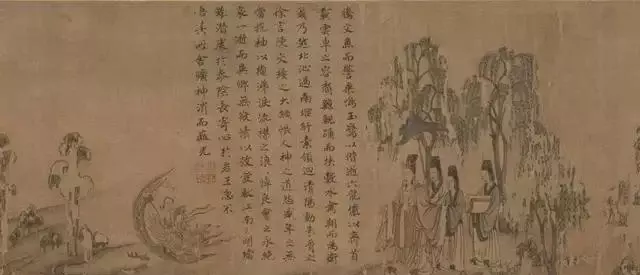 騰文魚而警乘鳴玉鸞以偕逝六龍儼以齊首
載雲車之容裔鯨鯢踊而挾轂水禽翔而為衛
乃越北沚過南堽紆素領迴清陽動朱唇之
徐言陳交接之大綱恨人神之道殊怨盛年之無
當抗袖以掩涕淚流襟之浪浪悼良會之永絕
哀一逝而異鄉無微情以效愛獻江南之明璫
雖潛處於太陰長寄心於君王忽不
舍神消而蔽光